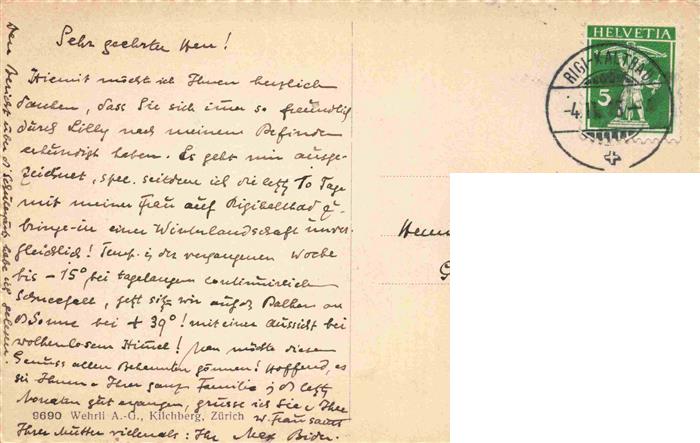 Sehr geehrter Herr!
Hiemit möcht ich Ihnen herzlich
danken, dass Sie sich imer so freundlich
durch Lilly nach meinem Befinden
erkundigt haben. Es geht mir ausge-
zeichnet, spec. seitdem ich die letzt 10 Tage
mit meiner Frau auf Rigikaltbad zu-
bringe - in einer Winterlandschaft unver-
gleichlich! Temp. i. der vergangenen Woche
bis - 15° bei tagelangem continuirlich
Schneefall, jetzt sitz wir auf d. Balkon an
d. Sonne bei + 39°! mit einer Aussicht bei
wolkenlosem Himel! Man möchte diesen
Genuss allen Bekannten gönnen! Hoffend, es
sei Ihnen & Ihrer ganz Familie i. d. letzt
Monaten gut ergangen, grüsse ich Sie & Ihre
w. Frau samt
Ihrer Mutter vielmals: Ihr Max Bider.
Den Bericht über d. habe ich gelesen.
9690 Wehrli A.-G., Kilchberg, Zürich
HELVETIA
5
RIGI-KALTBAD